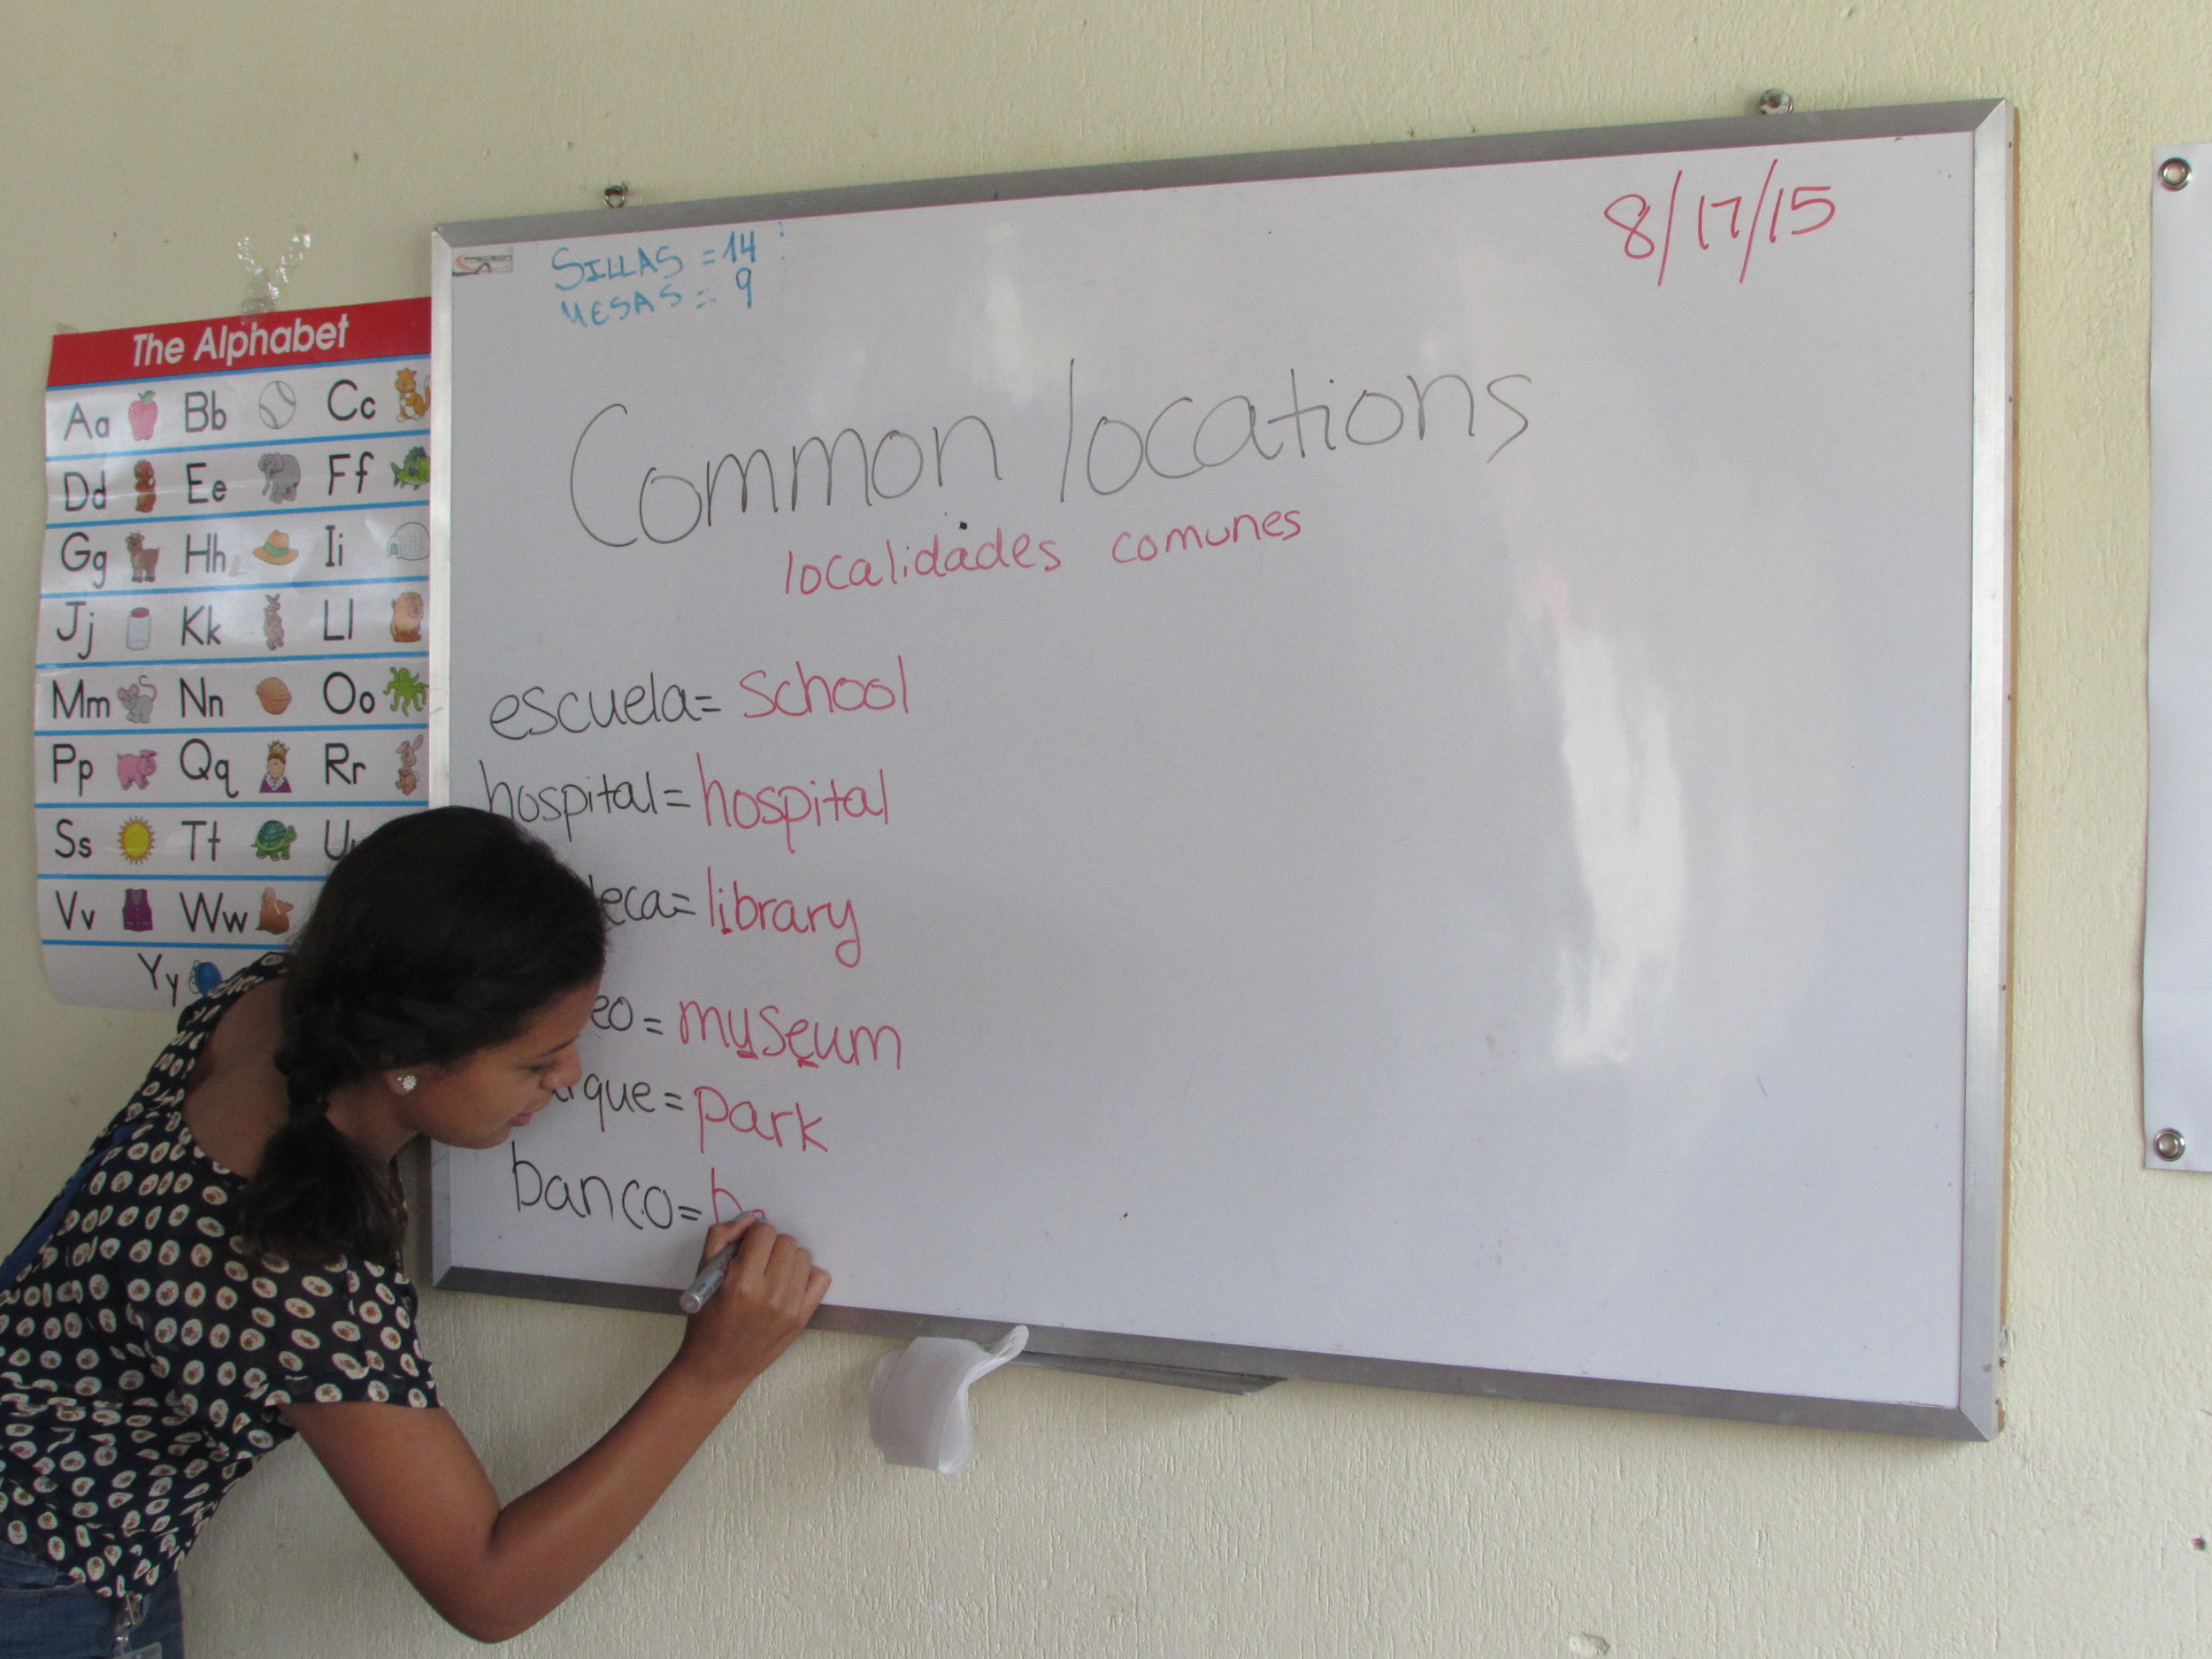 SILLAS = 14
MESAS = 9
8/17/15
Common locations
localidades comunes
escuela = school
hospital = hospital
eca = library
eo = museum
que = park
banco = b
The Alphabet
Aa Bb Cc
Dd Ee Ff
Gg Hh Ii
Jj Kk Ll
Mm Nn Oo
Pp Qq Rr
Ss Tt U
Vv Ww
Yy